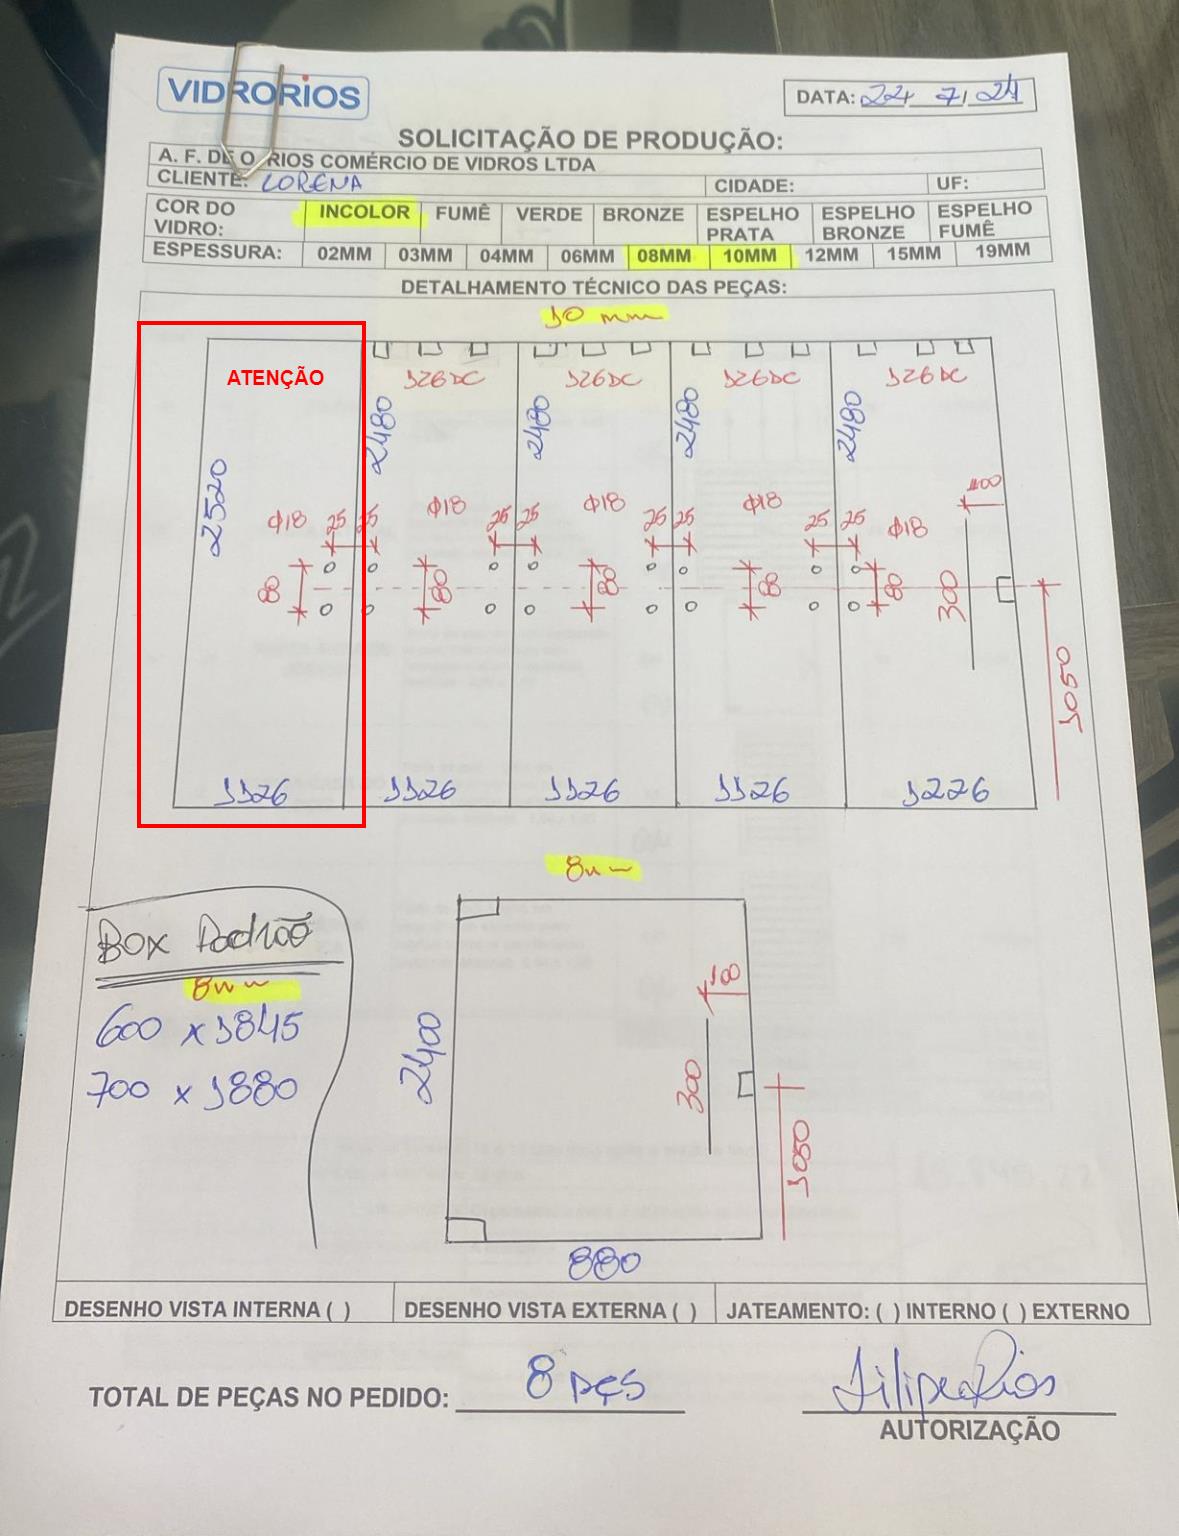 VIDRORIOS
DATA: 22/ 7/ 24
SOLICITAÇÃO DE PRODUÇÃO:
A. F. DE O RIOS COMÉRCIO DE VIDROS LTDA
CLIENTE: LORENA CIDADE: UF:
COR DO VIDRO: INCOLOR FUMÊ VERDE BRONZE ESPELHO PRATA ESPELHO BRONZE ESPELHO FUMÊ
ESPESSURA: 02MM 03MM 04MM 06MM 08MM 10MM 12MM 15MM 19MM
DETALHAMENTO TÉCNICO DAS PEÇAS:
10 mm
ATENÇÃO 126DC 126DC 126DC 126DC
2520 2480 2480 2480 2480
100
Φ18 25 25 Φ18 25 25 Φ18 25 25 Φ18 25 25 Φ18
80 80 80 80 80 300
1050
1126 1126 1126 1126 1226
8mm
Box Padrão
8mm
600 x 1845
700 x 1880
100
2400 300
1050
880
DESENHO VISTA INTERNA ( ) DESENHO VISTA EXTERNA ( ) JATEAMENTO: ( ) INTERNO ( ) EXTERNO
TOTAL DE PEÇAS NO PEDIDO: 8 pçs
Filipe Rios
AUTORIZAÇÃO